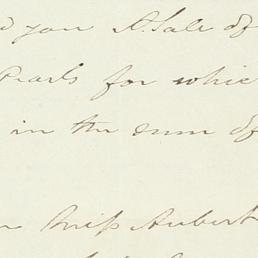 you A. Sale of
Pearls for whic
in the sum of
Miss Aubert